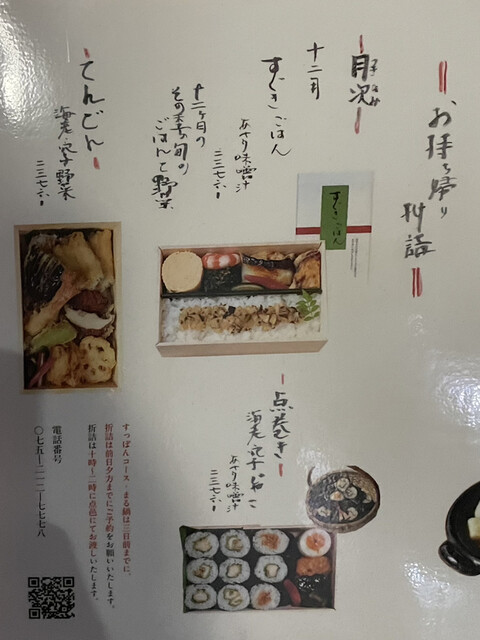 お持ち帰り
折詰
月次
つきなみ
十二月
すぐきごはん
あさり味噌汁
二三七六
十二ヶ月の
その季の旬の
ごはんと野菜
てんどん
海老、穴子、野菜
二三七六
すぐきごはん
点巻き
海老、穴子
あさり味噌汁
二三七六
すっぽんコース・まる鍋は三日前までに、
折詰は前日夕方までにご予約をお願いいたします。
折詰は十時〜二時に点邑にてお渡しいたします。
電話番号
〇七五-二一二-七七七八